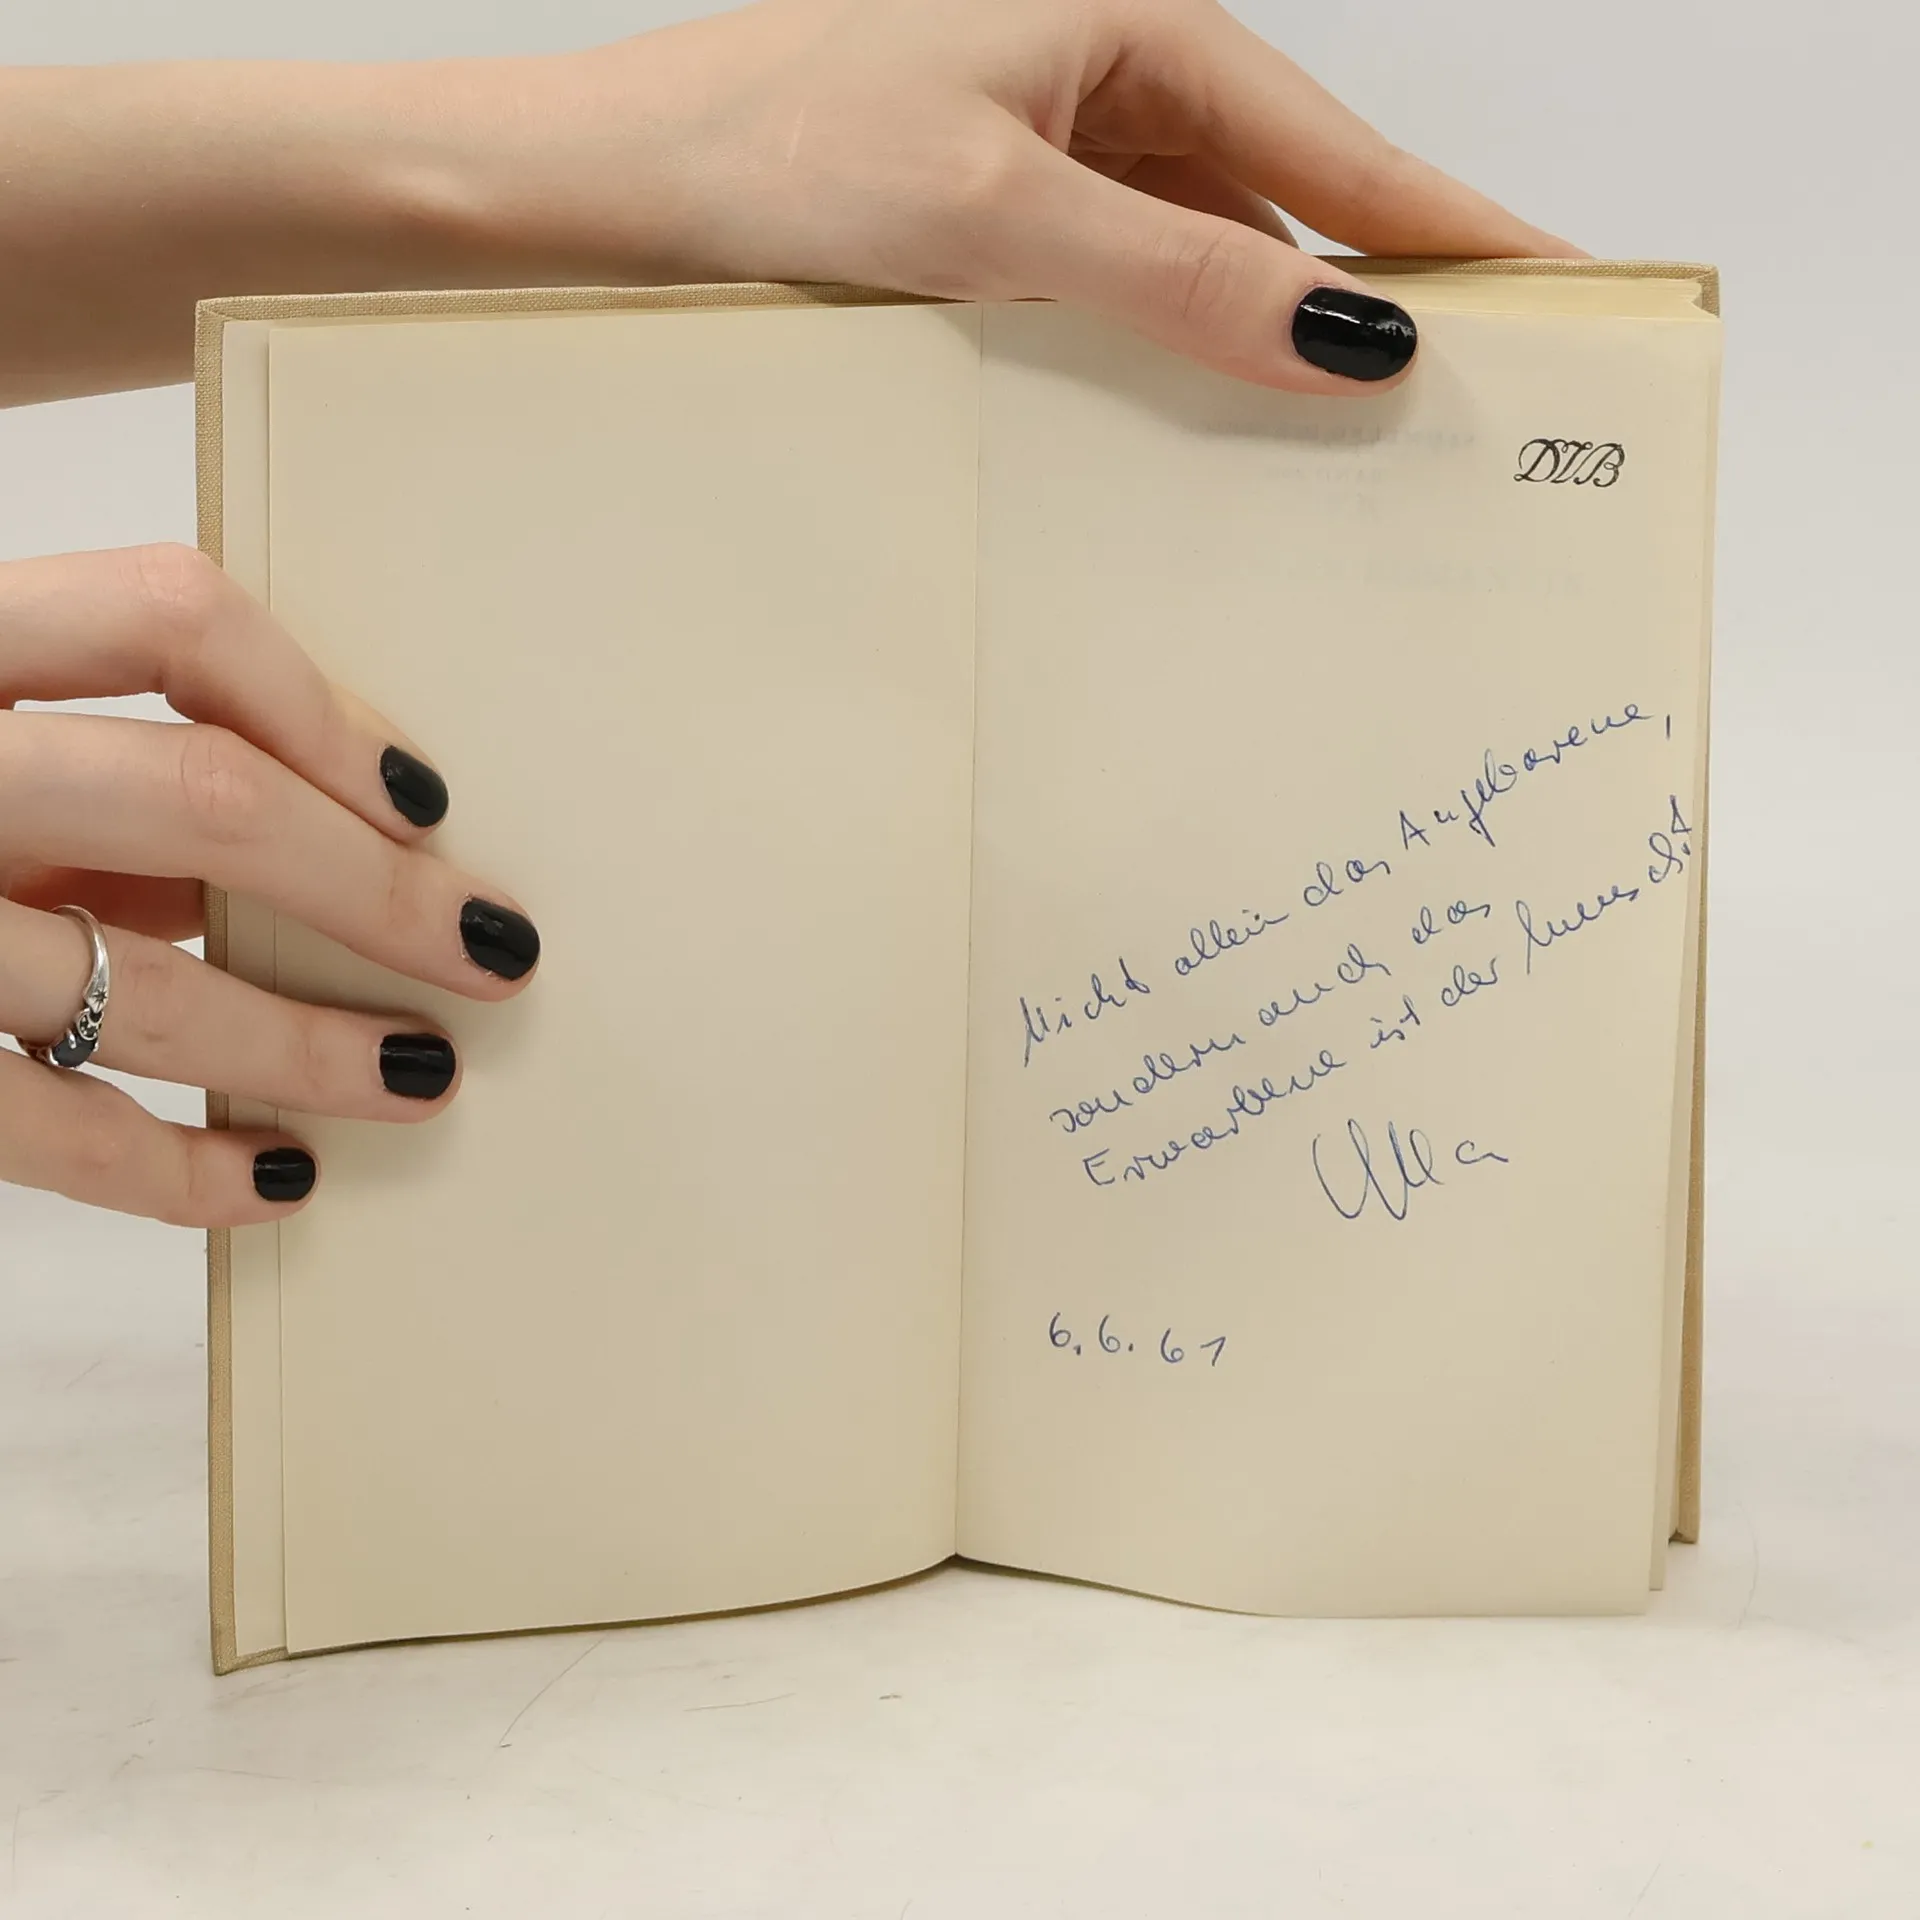 DVB
Nicht allein das Angeborene,
sondern auch das
Erworbene ist der Mensch.
Ulla
6.6.61